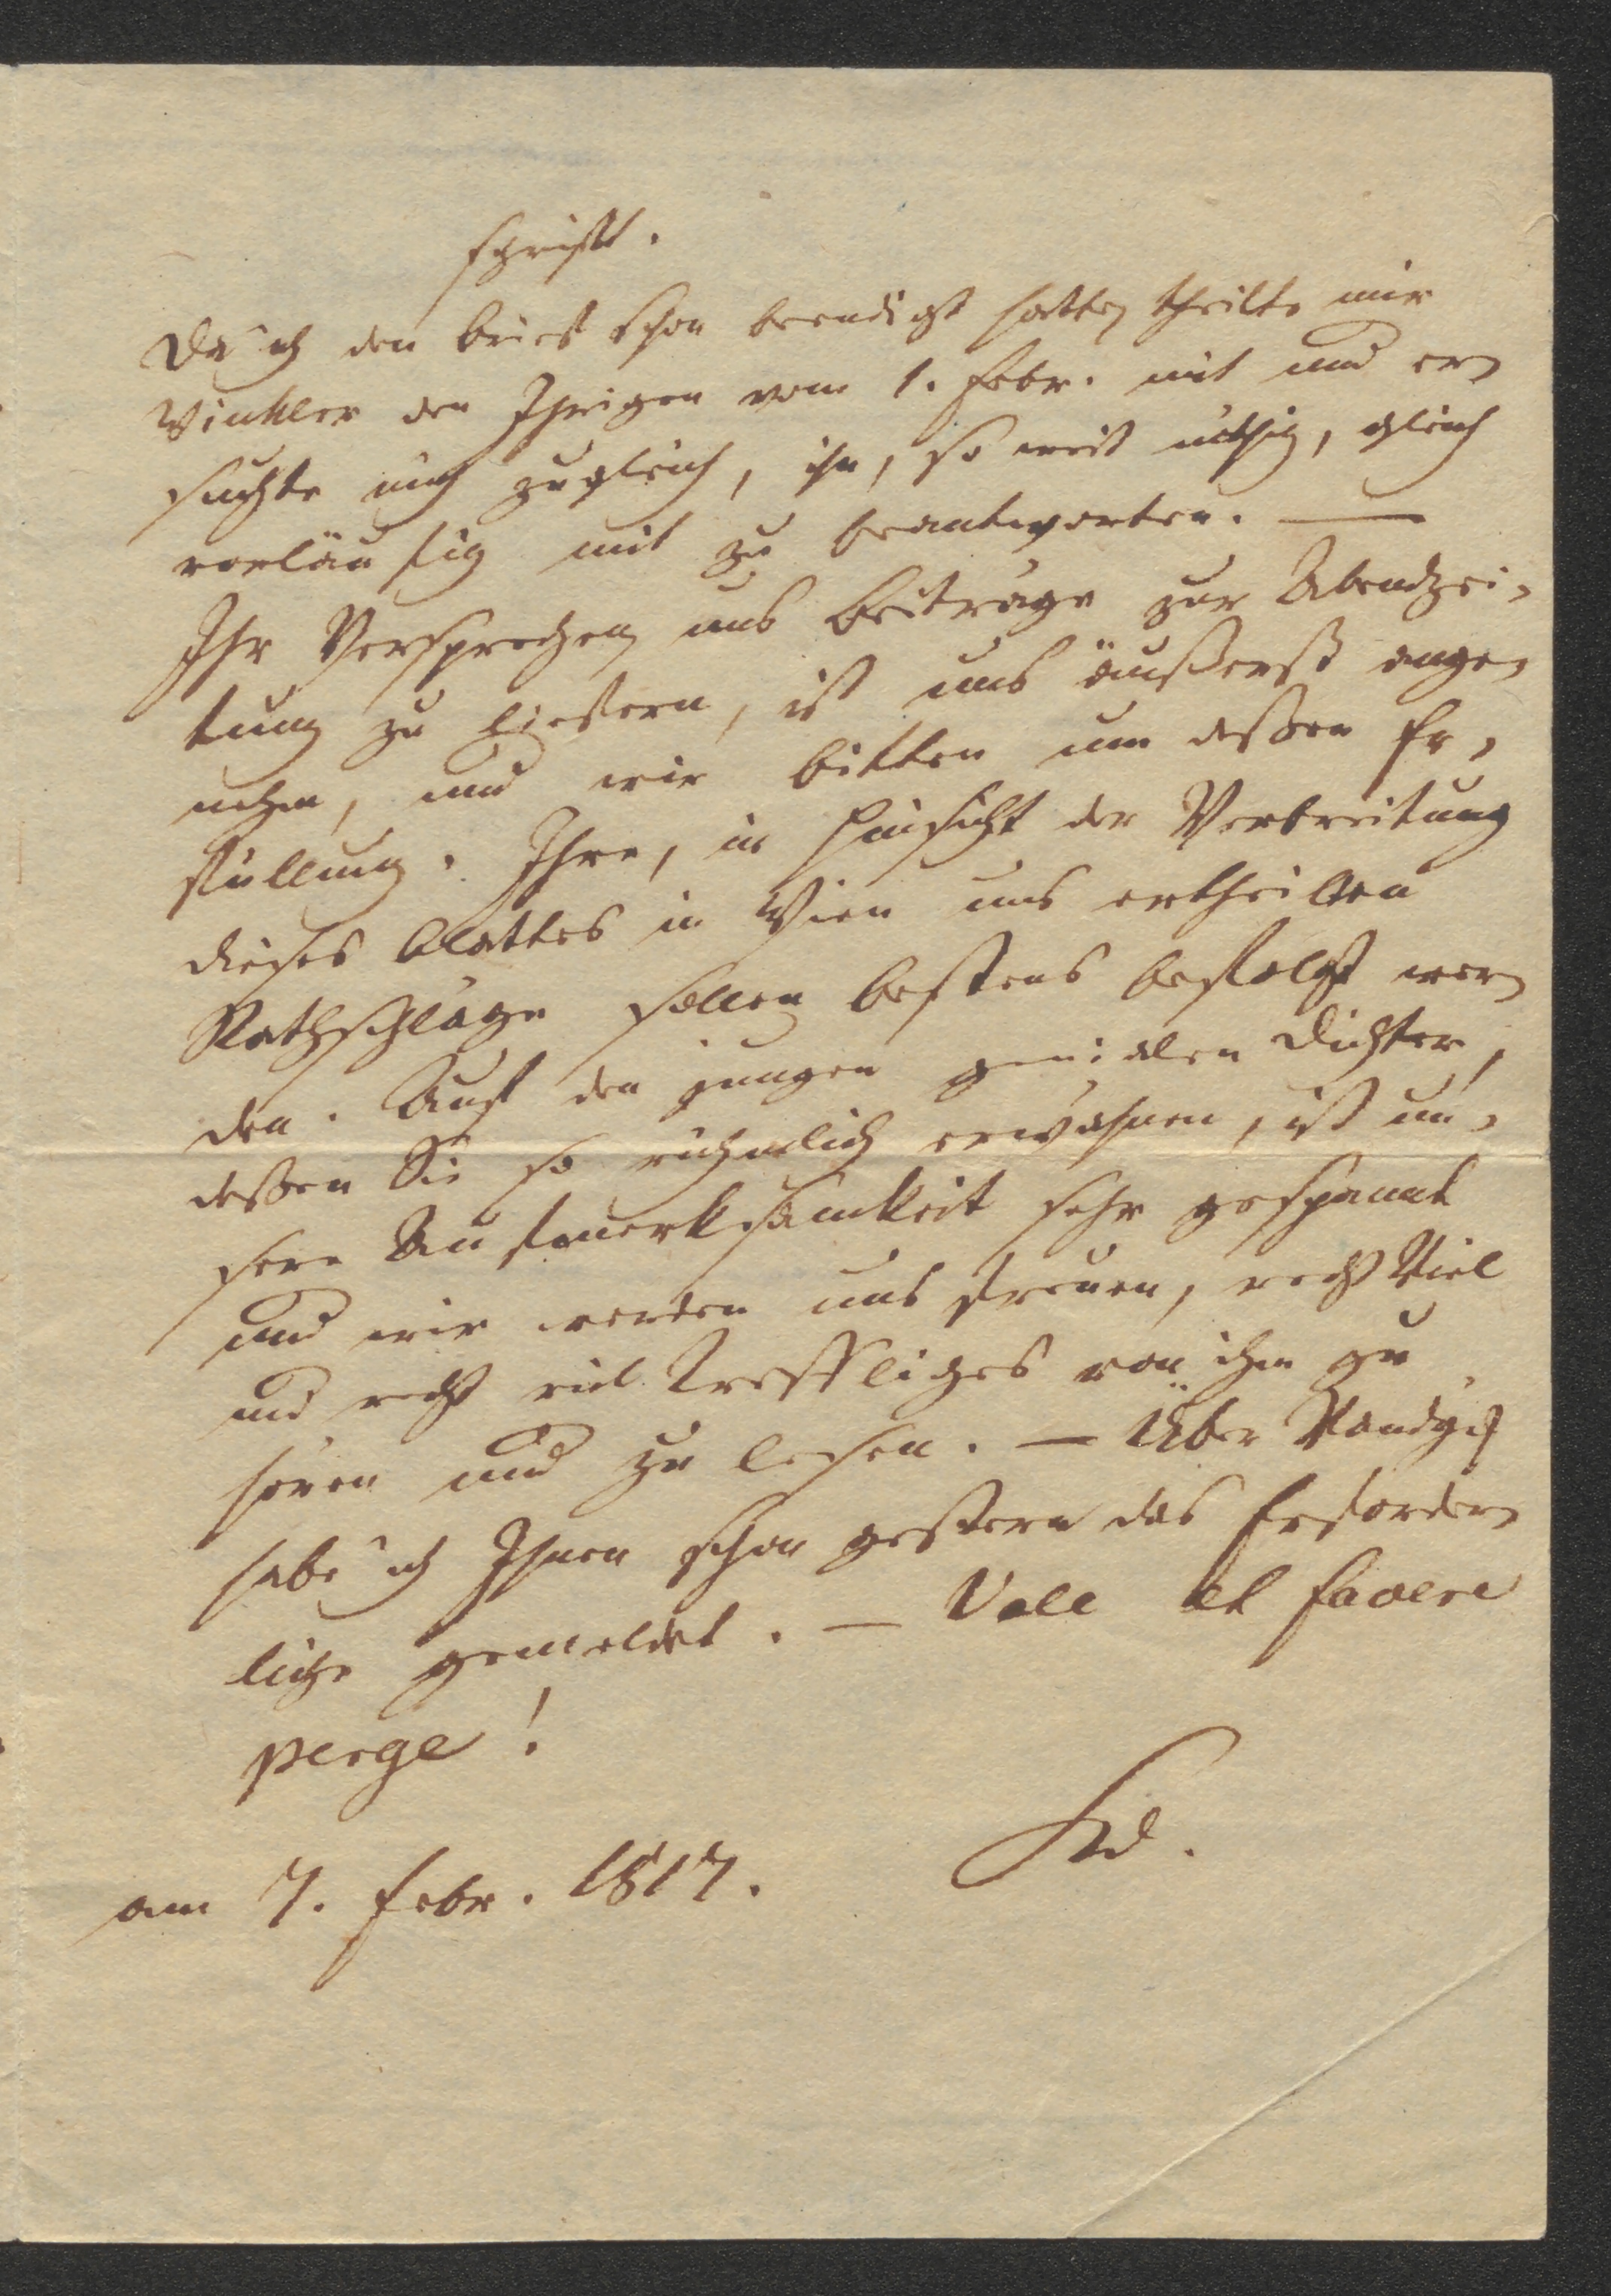 schrifft.
Da ich den Brief schon beendigt hatte, theilte mir
Winkler den Ihrigen vom 1. Febr. mit und er-
suchte mich zugleich, ihn, so weit nöthig, gleich
vorläufig mit zu beantworten. —
Ihr Versprechen, uns Beiträge zur Abendzei-
tung zu liefern, ist uns äußerst ange-
nehm, und wir bitten um deßen Er-
füllung. Ihre, in Hinsicht der Verbreitung
dieses Blattes in Wien uns ertheilten
Rathschläge sollen bestens befolgt wer-
den. Auf den jungen genialen Dichter,
deßen Sie so rühmlich erwähnen, ist un-
sere Aufmerksamkeit sehr gespannt
und wir werden uns freuen, recht Viel
und recht viel Treffliches von ihm zu
hören und zu lesen. — Über
habe ich Ihnen schon gestern das Erforder-
liche gemeldet. — Vale et favere
perge!
Kd.
am 7. Febr. 1817.